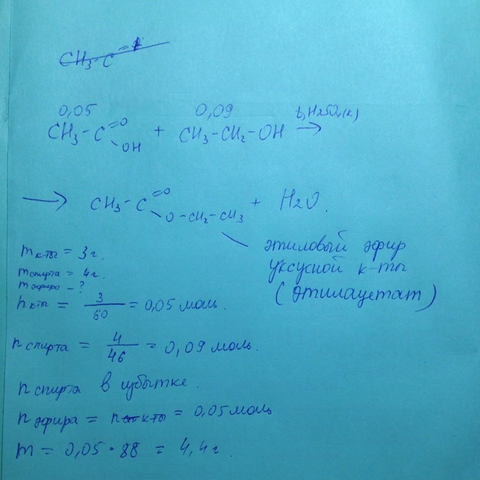 CH3-C
0,05 0,09
CH3-C=O OH + CH3-CH2-OH t, H2SO4(к) →
→ CH3-C=O O-CH2-CH3 + H2O.
этиловый эфир
уксусной к-ты
(этилацетат)
mк-ты = 3г.
mспирта = 4г.
mэфира - ?
nк-ты = 3/60 = 0,05 моль.
nспирта = 4/46 = 0,09 моль.
nспирта в избытке.
nэфира = nк-ты = 0,05 моль
m = 0,05 • 88 = 4,4г.